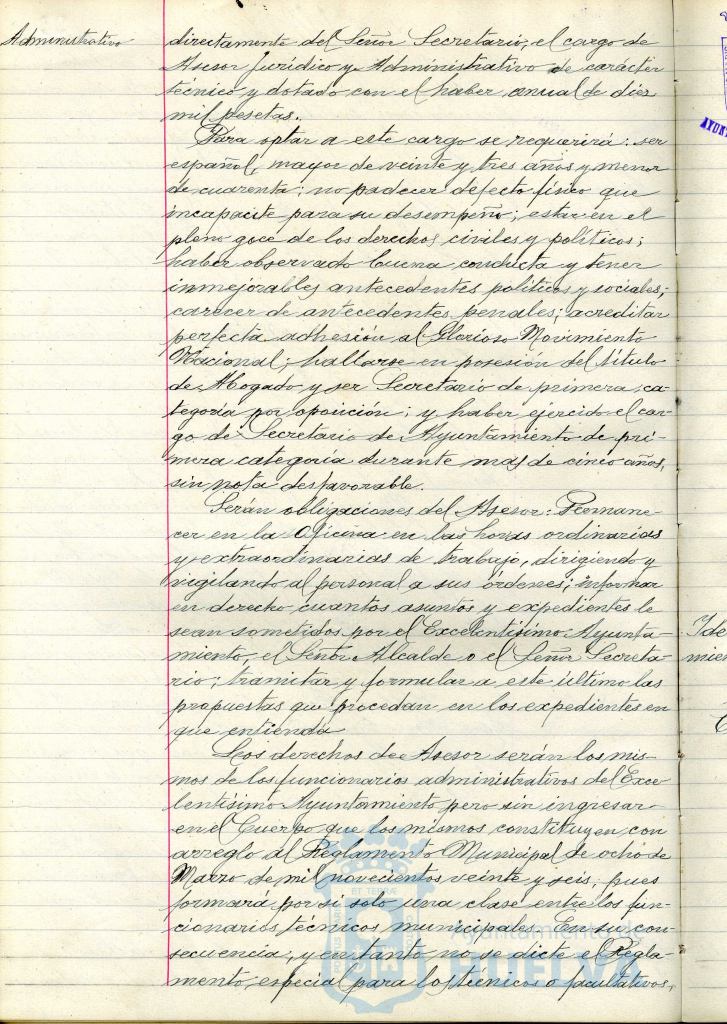 Administrativo
directamente del Señor Secretario, el cargo de
Asesor Jurídico y Administrativo de carácter
técnico y dotado con el haber anual de diez
mil pesetas.
Para optar a este cargo se requerirá: ser
español, mayor de veinte y tres años y menor
de cuarenta; no padecer defecto físico que
incapacite para su desempeño; estar en el
pleno goce de los derechos civiles y políticos;
haber observado buena conducta y tener
inmejorables antecedentes políticos y sociales;
carecer de antecedentes penales; acreditar
perfecta adhesión al Glorioso Movimiento
Nacional; hallarse en posesión del título
de Abogado y ser Secretario de primera ca-
tegoría por oposición; y haber ejercido el car-
go de Secretario de Ayuntamiento de pri-
mera categoría durante más de cinco años,
sin nota desfavorable.
Serán obligaciones del Asesor: Permane-
cer en la Oficina en las horas ordinarias
y extraordinarias de trabajo, dirigiendo y
vigilando al personal a sus órdenes; informar
en derecho cuantos asuntos y expedientes le
sean sometidos por el Excelentísimo Ayunta-
miento, el Señor Alcalde o el Señor Secreta-
rio; tramitar y formular a este último las
propuestas que procedan en los expedientes en
que entienda
Los derechos de Asesor serán los mis-
mos de los funcionarios administrativos del Exce-
lentísimo Ayuntamiento pero sin ingresar
en el Cuerpo que los mismos constituyen con
arreglo al Reglamento Municipal de ocho de
Marzo de mil novecientos veinte y seis, pues
formará por si solo una clase entre los fun-
cionarios técnicos municipales. En su con-
secuencia, y en tanto no se dicte el Regla-
mento especial para los técnicos o facultativos,
Ayuntamiento de
HUELVA